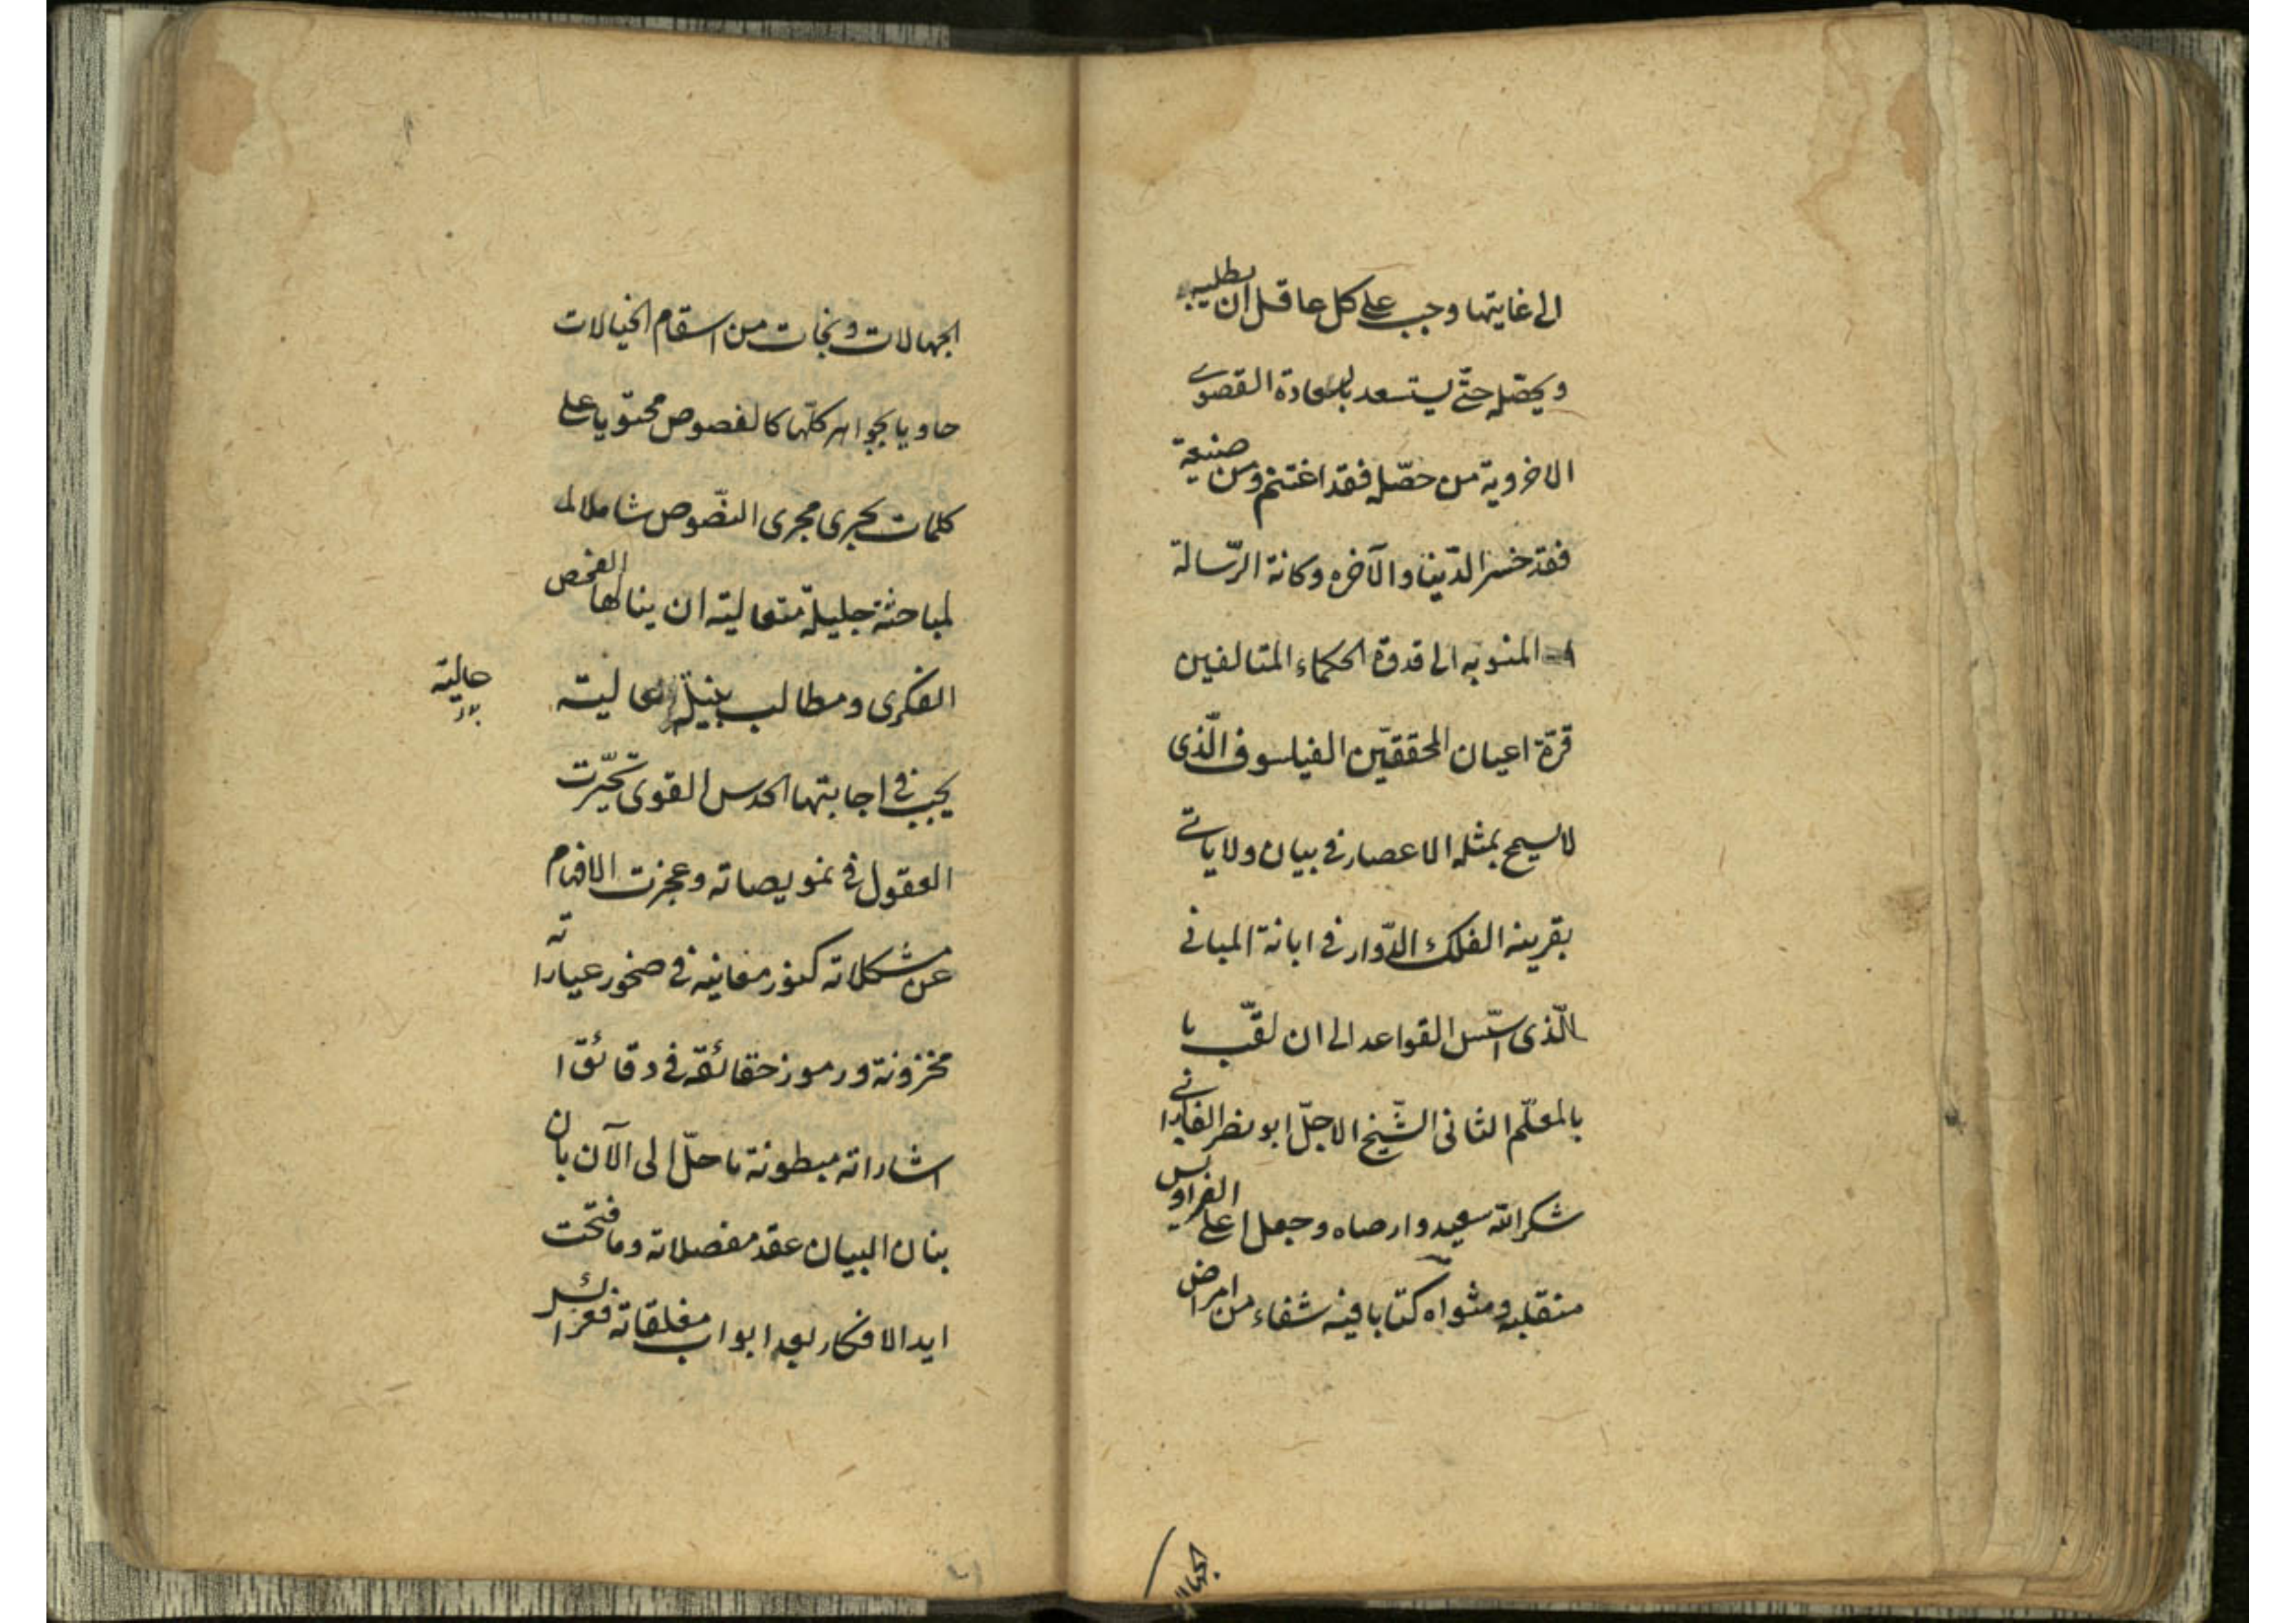 الى غايتها وجب على كل عاقل ان يطلبه
ويحصّله حتّى يستسعد بالسعادة القصوى
الاخروية من حصّله فقد اغتنم ومن ضيعه
فقد خسر الدّنيا والآخره وكانة الرّسالة
المنسوبه الى قدوة الحكماء المتالهين
قرّة اعيان المحققّين الفيلسوف الّذى
لا يسمح بمثله الاعصار فى بيان ولا ياتى
بقرينه الفلك الدّوار فى ابانة المبانى
الّذى اسّس القواعد الى ان لقّب با
بالمعلّم الثانى الشّيخ الاجلّ ابو نصر الفارابى
شكر الله سعيه وارضاه وجعل اعلى الفراديس
منقلبه ومثواه كتابا فيه شفاء من امراض
الجهالا
الجهالات ونجات من اسقام الخيالات
حاويا بجواهر كلّها كالفصوص محتويا على
كلمات يجرى مجرى النصّوص شاملا لمـ
لمباحثة جليلة متعالية ان ينالها الفحص
الفكرى ومطالب عالية
حالية
يجب فى اجابتها الحدس القوى تحيّرت
العقول فى غويصاته وعجزت الافهام
عن مشكلاته كنوز معانيه فى صخور عباراته
مخزونة ورموز حقائقه فى دقائق ا
اشاراته مبطونة ما حلّ الى الآن بان
بنان البيان عقد مفصلاته وما فتحت
ايد الافكار بعد ابواب مغلقاته فعزائسر